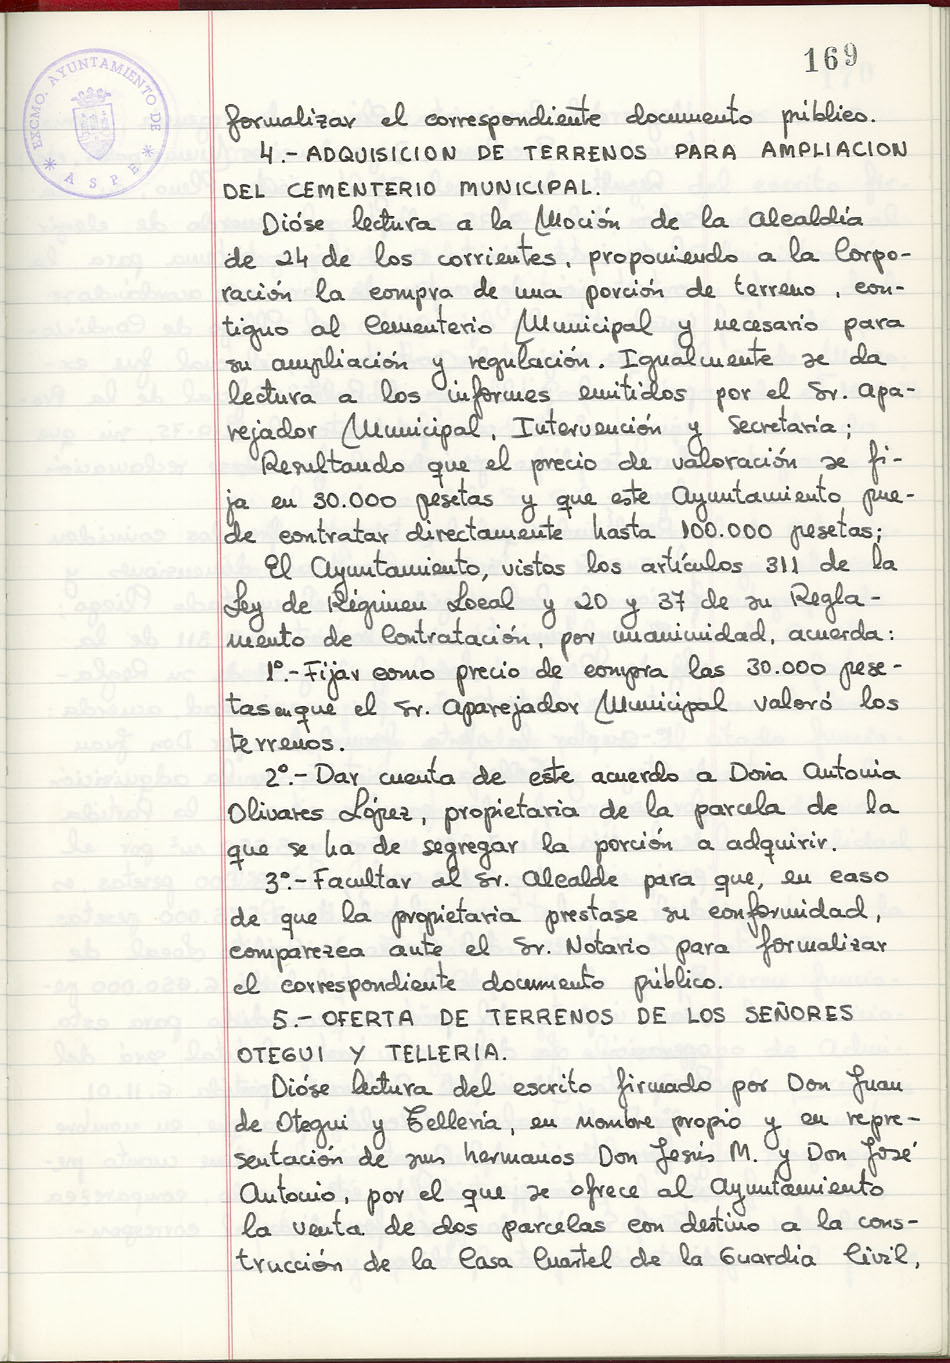 169
EXCMO. AYUNTAMIENTO DE
* ASPE *
formalizar el correspondiente documento público.
4.- ADQUISICION DE TERRENOS PARA AMPLIACION
DEL CEMENTERIO MUNICIPAL.
Dióse lectura a la Moción de la Alcaldía
de 24 de los corrientes, proponiendo a la Corpo-
ración la compra de una porción de terreno, con-
tiguo al Cementerio Municipal y necesario para
su ampliación y regulación. Igualmente se da
lectura a los informes emitidos por el Sr. Apa-
rejador Municipal, Intervención y Secretaría;
Resultando que el precio de valoración se fi-
ja en 30.000 pesetas y que este Ayuntamiento pue-
de contratar directamente hasta 100.000 pesetas;
El Ayuntamiento, vistos los artículos 311 de la
Ley de Régimen Local y 20 y 37 de su Regla-
mento de Contratación, por unanimidad, acuerda:
1º.- Fijar como precio de compra las 30.000 pese-
tas en que el Sr. Aparejador Municipal valoró los
terrenos.
2º.- Dar cuenta de este acuerdo a Doña Antonia
Olivares López, propietaria de la parcela de la
que se ha de segregar la porción a adquirir.
3º.- Facultar al Sr. Alcalde para que, en caso
de que la propietaria prestase su conformidad,
comparezca ante el Sr. Notario para formalizar
el correspondiente documento público.
5.- OFERTA DE TERRENOS DE LOS SEÑORES
OTEGUI Y TELLERIA.
Dióse lectura del escrito firmado por Don Juan
de Otegui y Tellería, en nombre propio y en repre-
sentación de sus hermanos Don Jesús M. y Don José
Antonio, por el que se ofrece al Ayuntamiento
la venta de dos parcelas con destino a la cons-
trucción de la Casa Cuartel de la Guardia Civil,